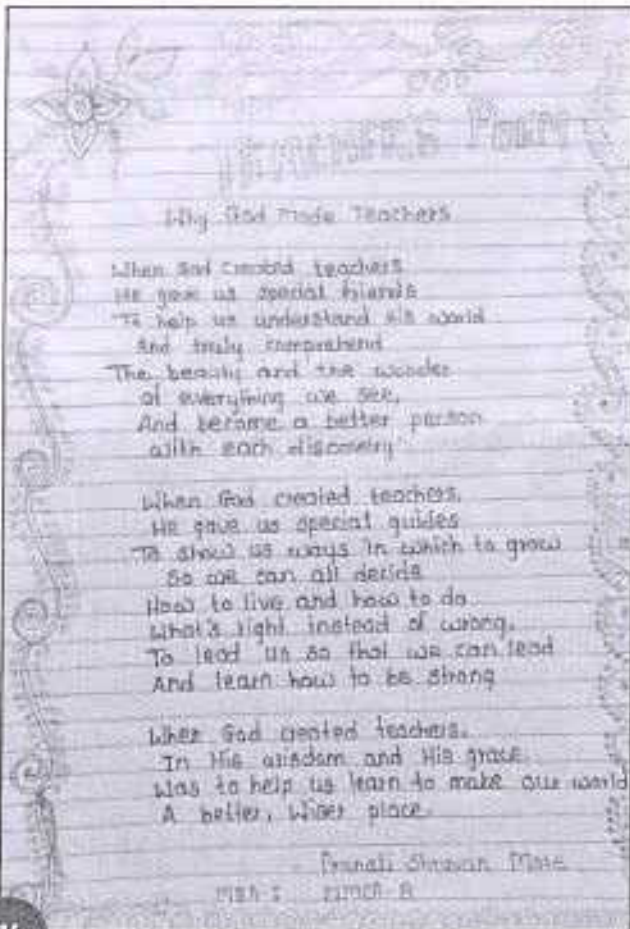 TEACHER'S POEM
Why God Made Teachers
When God created teachers
He gave us special friends
To help us understand His world
And truly comprehend
The beauty and the wonder
of everything we see,
And become a better person
with each discovery
When God created teachers,
He gave us special guides
To show us ways in which to grow
So we can all decide
How to live and how to do
What's right instead of wrong,
To lead us so that we can lead
And learn how to be strong
When God created teachers,
In His wisdom and His grace
Was to help us learn to make our world
A better, wiser place.
Pranali Shravan More